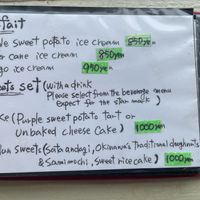 fait
le sweet potato ice cream 850yen
r cane ice cream 850yen
go ice cream 950yen
ets set (with a drink
Please select from the beverage menu
Except for the star mark)
ke (Purple sweet potato tart or
Unbaked cheese cake) 1000yen
un Sweets (Sata andagi, Okinawa's Traditional doughnuts
& Sanimochi, sweet rice cake) 1000yen